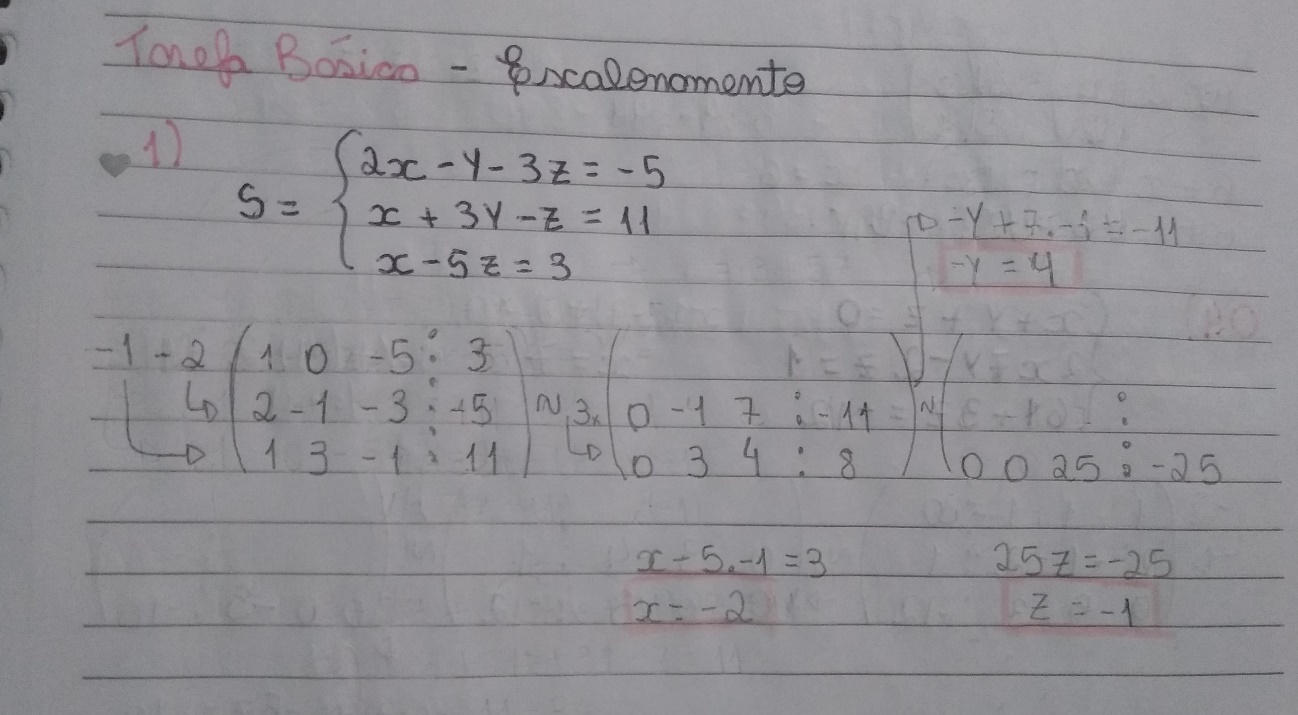 Tarefa Básica - Escalonamento
1)
S = { 2x - y - 3z = -5
x + 3y - z = 11
x - 5z = 3
-y + 7.-1 = -11
-y = 4
-1 -2 ( 1 0 -5 : 3 )
( 2 -1 -3 : -5 ) ~ 3x ( 0 -1 7 : -11 ) ~ ( :
( 1 3 -1 : 11 ) ( 0 3 4 : 8 ) ( 0 0 25 : -25
x - 5.-1 = 3 25z = -25
x = -2 z = -1